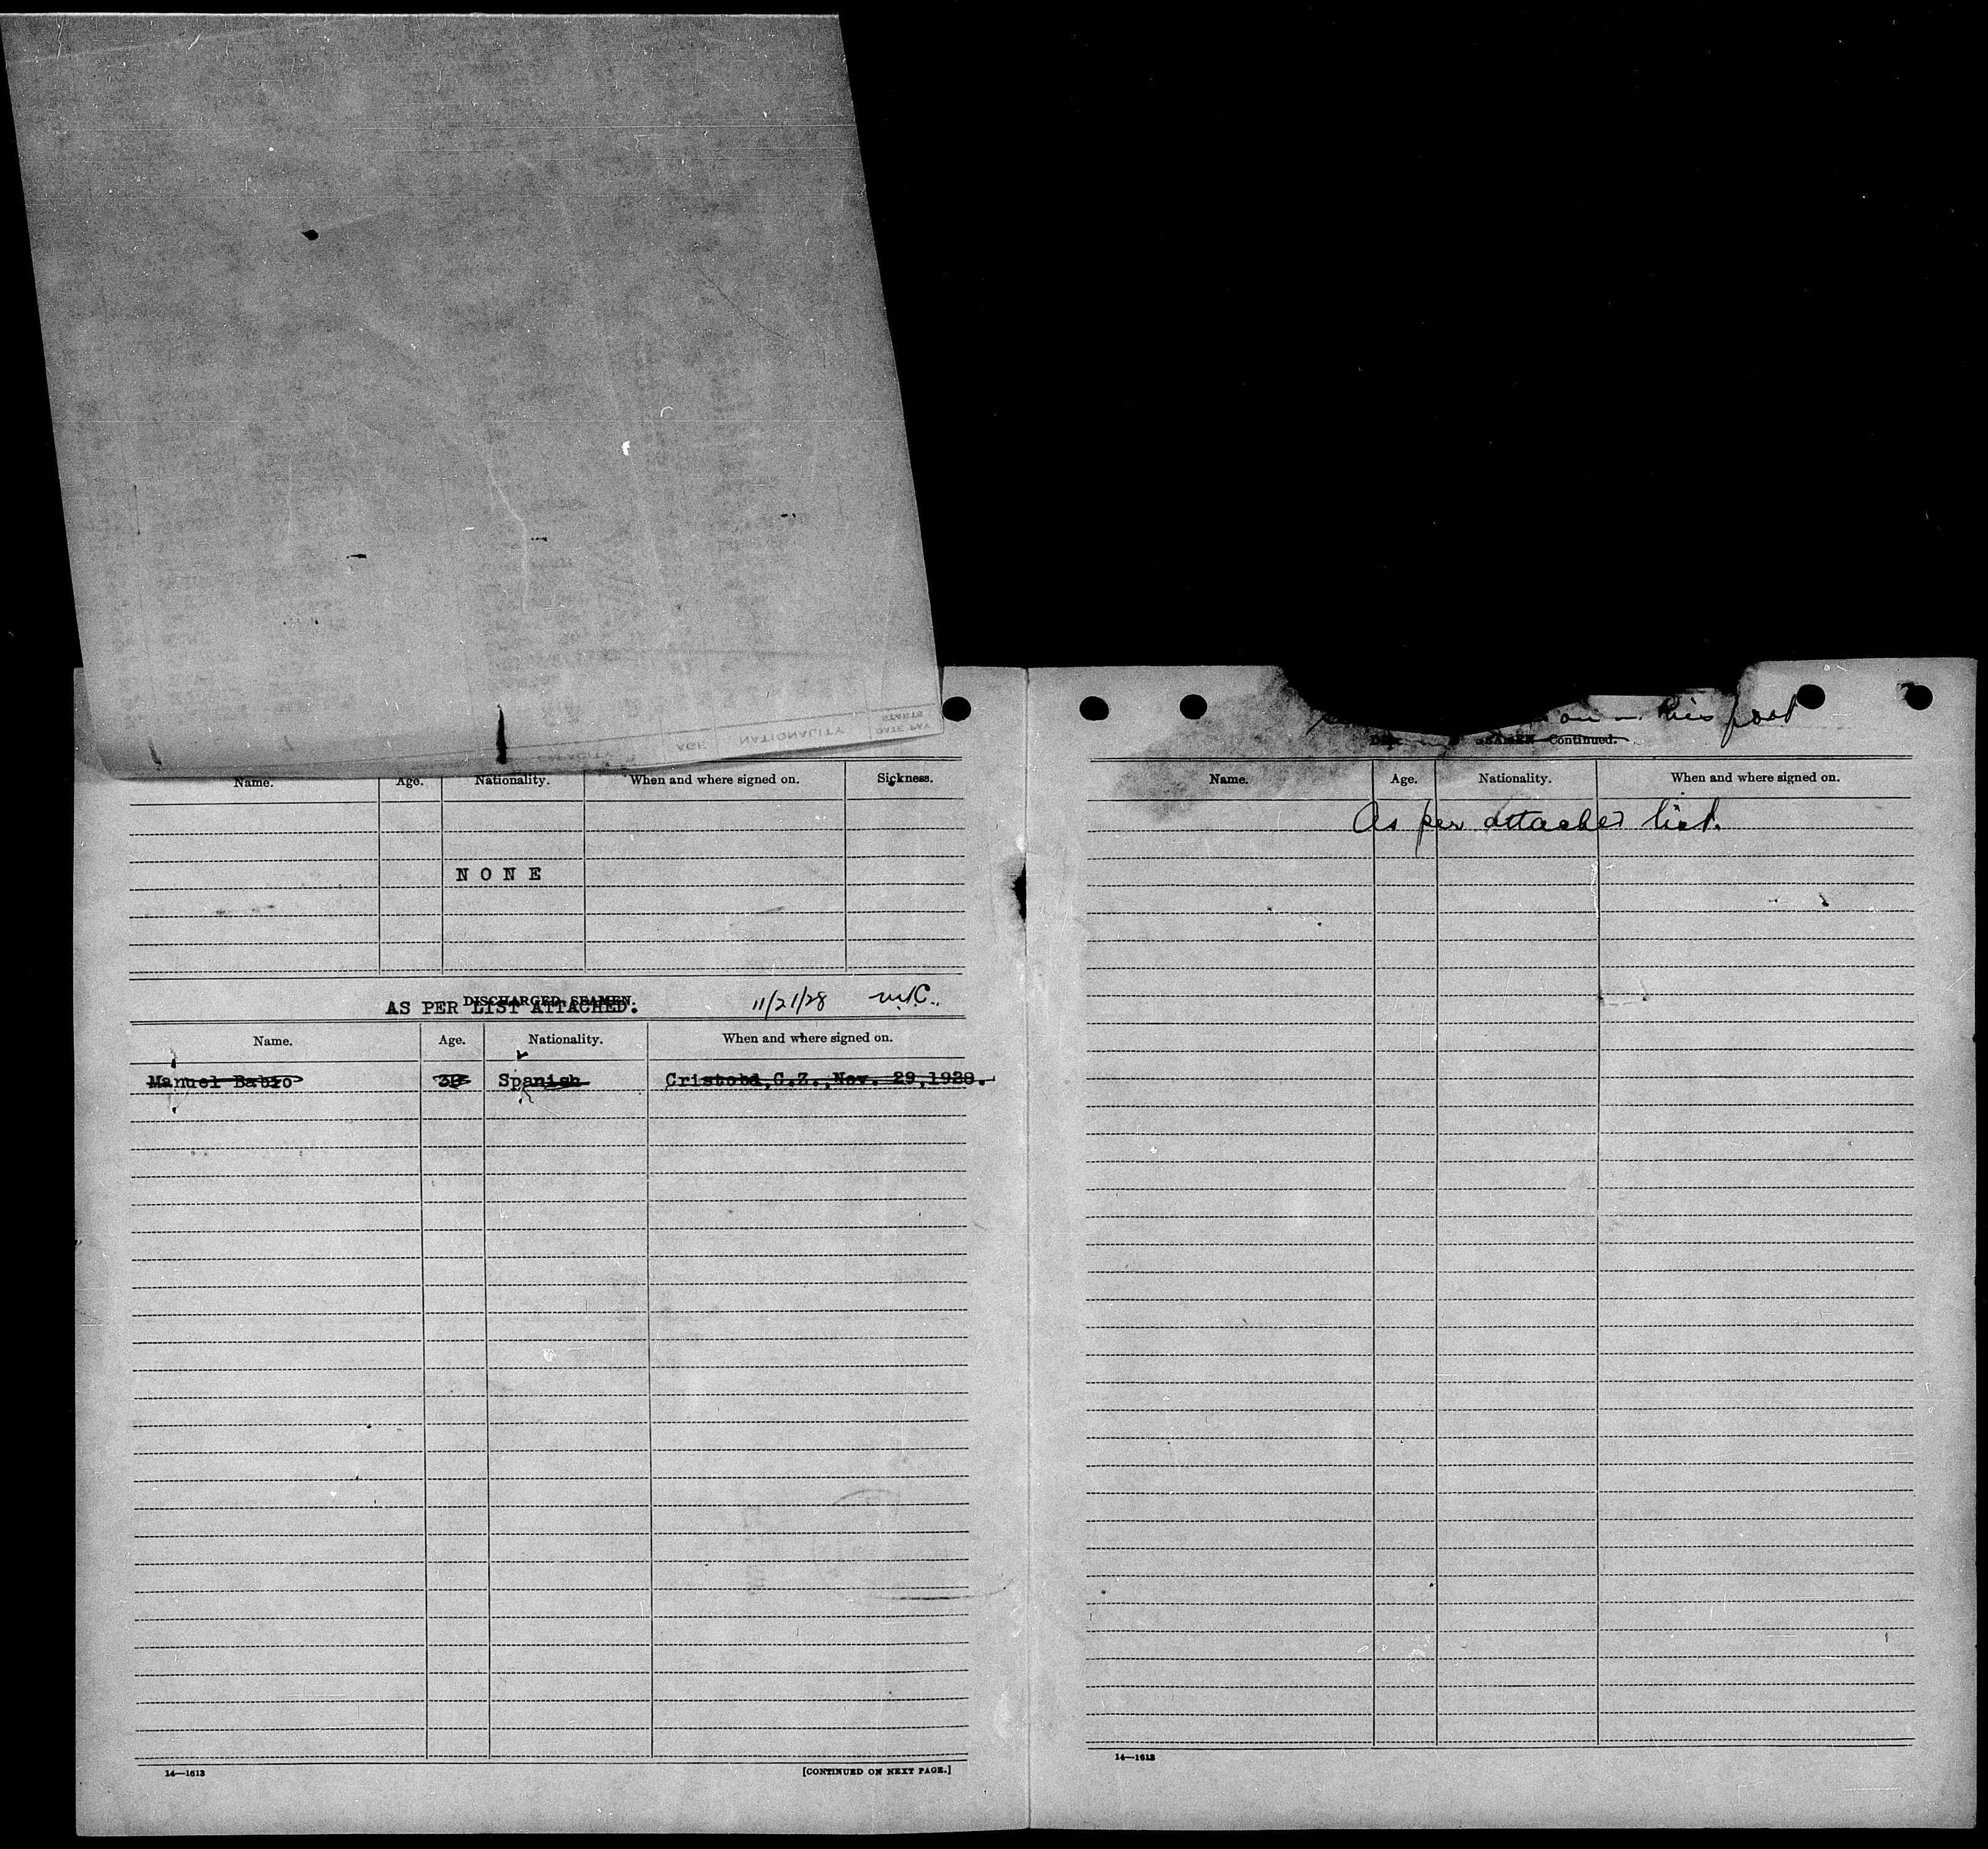 STARTS
DATE PAY
NATIONALITY
AGE
Name. Age. Nationality. When and where signed on. Sickness.
N O N E
DISCHARGED SEAMEN.
AS PER LIST ATTACHED. 11/21/28
Name. Age. Nationality. When and where signed on.
Manuel Babio Spanish Cristobal, C.Z., Nov. 29, 1928.
14—1613
[CONTINUED ON NEXT PAGE.]
on this port
SEAMEN—Continued.
Name. Age. Nationality. When and where signed on.
As per attached list.
14—1613